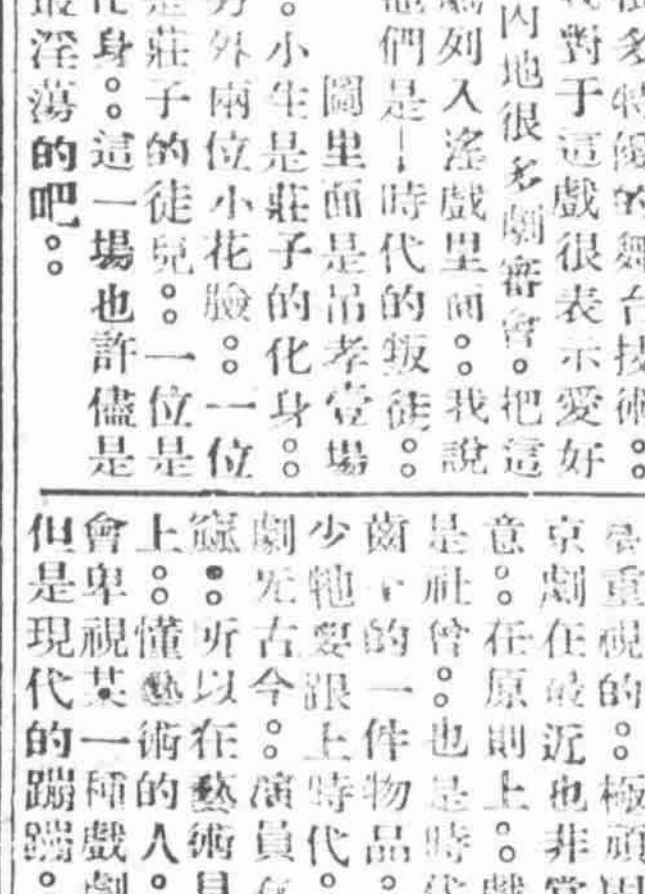 很多特優的舞台技術。。
我對于這戲很表示愛好
內地很多劇審會。把這
列入滛戲里面。。我說
他們是—時代的叛徒。。
圖里面是吊孝壹場
。小生是莊子的化身。。
另外兩位小花臉。。一位
是莊子的徒兒。。一位是
化身。。這一場也許儘是
最淫蕩的吧。。
重視的。。極頑固
京劇在最近也非常
意。。在原則上。。戲
是社會。。也是時代
齒下的一件物品。
少牠要跟上時代。
劇无古今。。演員
所以在藝術
上。。懂藝術的人。
會卑視某一種戲劇
但是現代的蹦蹦。